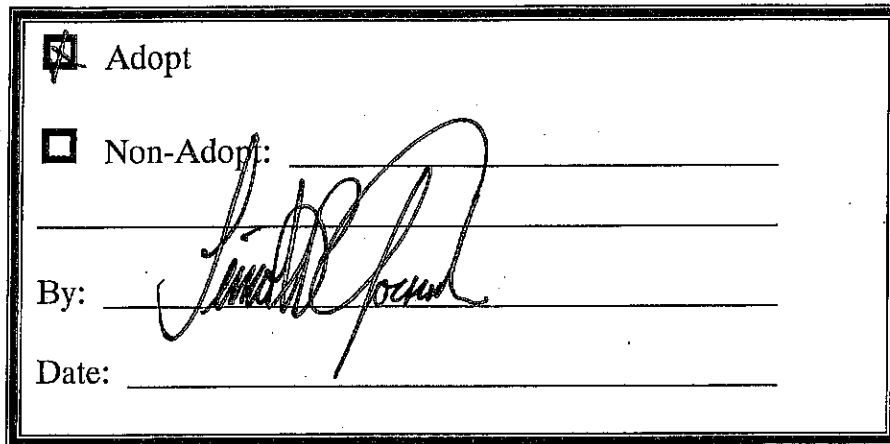 Adopt
Non-Adopt:
By:
Date: